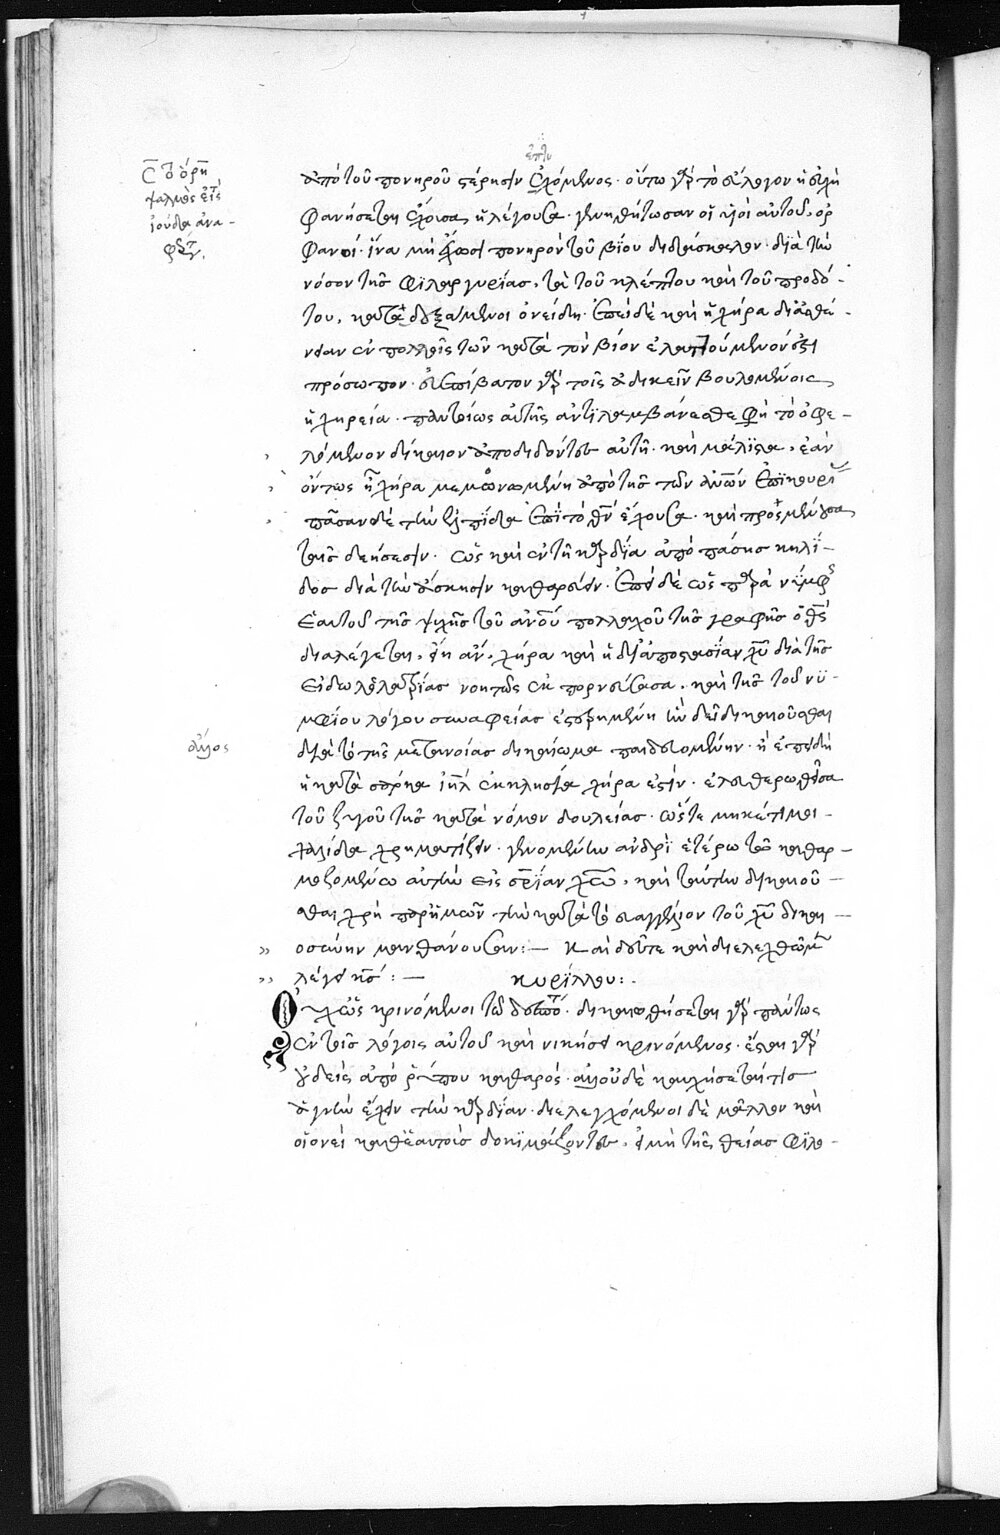 ψαλμὸς εἰς
ἰούδα ἀνα-
ἀπὸ τοῦ πονηροῦ στέρησιν εὐχόμενος· οὕτω γὰρ τὸ εὔλογον ἡ εὐχὴ
φανήσεται ἔχουσα, ἡ λέγουσα· γενηθήτωσαν οἱ υἱοὶ αὐτοῦ ὀρ
φανοί· ἵνα μὴ πονηρὸν τοῦ βίου διδάσκαλον· διὰ τὴν
νόσον τῆς φιλαργυρίας, τὰ τοῦ κλέπτου καὶ τοῦ προδό-
του, κατὰ δεξάμενοι ὀνείδη· ἐπεὶ δὲ καὶ ἡ χήρα
ἐν πολλοῖς τῶν κατὰ τὸν βίον ἐλαττούμενον ἔχει
πρόσωπον· εὐεπίβατον γὰρ τοῖς ἀδικεῖν βουλομένοις
ἡ χηρεία· παντοίως αὐτῆς ἀντιλαμβάνεσθε φὴ τὸ ὀφει-
λόμενον δίκαιον ἀποδιδόντες αὐτῇ· καὶ μάλιστα, ἐὰν
ὄντως ἦ χήρα μεμονωμένη ἀπὸ τῆς τῶν ἀνῶν ἐπικουρί
πᾶσαν δὲ τὴν ἐλπίδα ἐπὶ τὸν θν ἔχουσα· καὶ προσμένουσα
ταῖς δεήσεσιν· ὡς καὶ ἐν τῇ καρδία ἀπὸ πάσης κηλῖ-
δος διὰ τὴν ἄσκησιν καθαρεύειν· ἐπεὶ δὲ ὡς περὶ νύμφης
ἑαυτοῦ τῆς ψυχῆς τοῦ ἀνου πολλαχοῦ τῆς γραφῆς ὁ θς
διαλέγεται, εἴη ἂν, χήρα καὶ ἡ δι ἀποστασίαν χυ διὰ τῆς
εἰδωλολατρίας νοητῶς ἐκπορνεύσασα, καὶ τῆς τοῦ νυ-
μφίου λόγου συναφείας ἐστερημένη ἣν δεῖ δικαιοῦσθαι
διὰ τὸ τῆς μετανοίας δικαίωμα παιδευομένην· ἢ ἐπειδὴ
ἡ κατὰ σάρκα ιηλ ἐκκλησία χήρα ἐστίν· ἐλευθερωθεῖσα
τοῦ ζυγοῦ τῆς κατὰ νόμον δουλείας· ὥστε μηκέτι μοι-
χαλίδα χρηματίζειν· γενομένην ἀνδρὶ ἑτέρω τῶ καθαρ-
μοζομένω αὐτὴν εἰς σρίαν χω, καὶ ταύτην δικαιοῦ-
σθαι χρὴ παρ ἡμῶν τὴν κατὰ τὸ εὐαγγέλιον τοῦ χυ δικαι-
οσύνην μανθάνουσαν:— καὶ δεῦτε καὶ διελεγχθῶμεν
λέγει κς:—
κυρίλλου:.
Οὐχ ὡς κρινόμενοι τῶ δεσπότη· δικαιωθήσεται γὰρ πάντως
ἐν τοῖς λόγοις αὐτοῦ καὶ νικήσει κρινόμενος· ἔσται γὰρ
οὐδεὶς ἀπὸ ῥύπου καθαρός· ἀλλ οὐδὲ καυχήσεταί τις
ἁγνὴν ἔχειν τὴν καρδίαν· διελεγχόμενοι δὲ μᾶλλον καὶ
οἱονεὶ καθ ἑαυτοὺς δοκιμάζοντες, εἰ μὴ τῆς θείας φιλα-